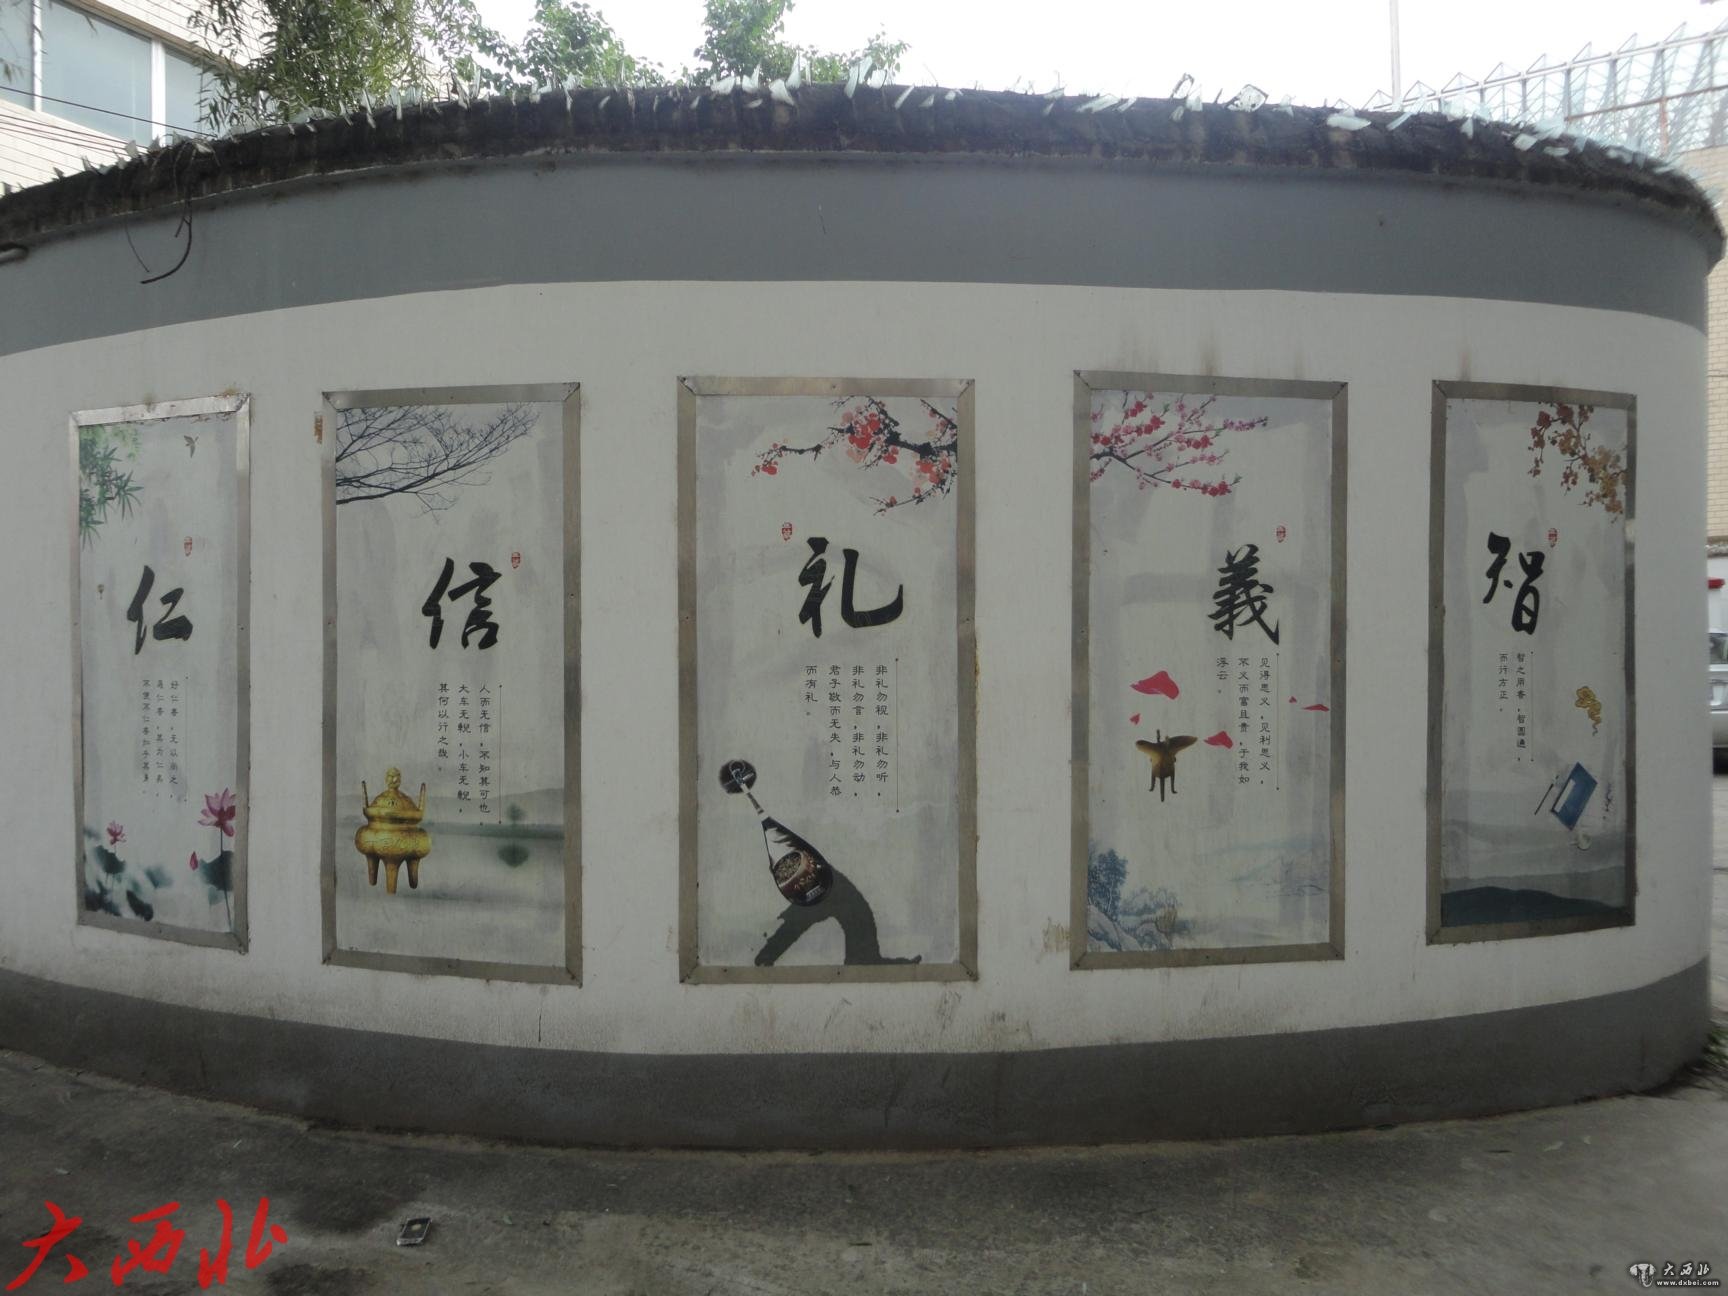 仁
好仁者，无以尚之，
恶仁者，其为仁矣，
不使不仁者加乎其身。
信
人而无信，不知其可也，
大车无輗，小车无輗，
其何以行之哉。
礼
非礼勿视，非礼勿听，
非礼勿言，非礼勿动，
君子敬而无失，与人恭
而有礼。
義
见得思义，见利思义，
不义而富且贵，于我如
浮云。
智
智之用者，智圆通，
而行方正。
大西北
大西北
www.dxbei.com